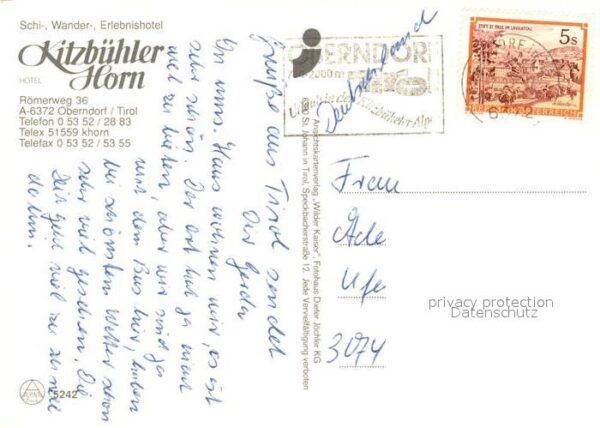 Schi-, Wander-, Erlebnishotel
Kitzbühler
HOTEL Horn
Römerweg 36
A-6372 Oberndorf / Tirol
Telefon 0 53 52 / 28 83
Telex 51559 khorn
Telefax 0 53 52 / 53 55
5242
Grüße aus Tirol sendet
Dir Gerda
In uns. Haus wohnen wir, es ist
sehr schön. Der Ort hat ja nicht
viel zu bieten, aber wir sind ja
mit dem Bus hier, haben
bei schönstem Wetter schon
sehr viel gesehen. Die
Zeit geht viel zu schnell
dahin.
Ansichtskartenverlag „Wilder Kaiser", Fotohaus Dieter Jöchler KG
6380 St. Johann in Tirol, Speckbacherstraße 12. Jede Vervielfältigung verboten
OBERNDORF
2000 m
Urlaub in den Kitzbüheler Alp
Deutschland
STIFT ST. PAUL IM LAVANTTAL
5 S
REPUBLIK ÖSTERREICH
Frau
Ade
Ufe
3074
privacy protection
Datenschutz